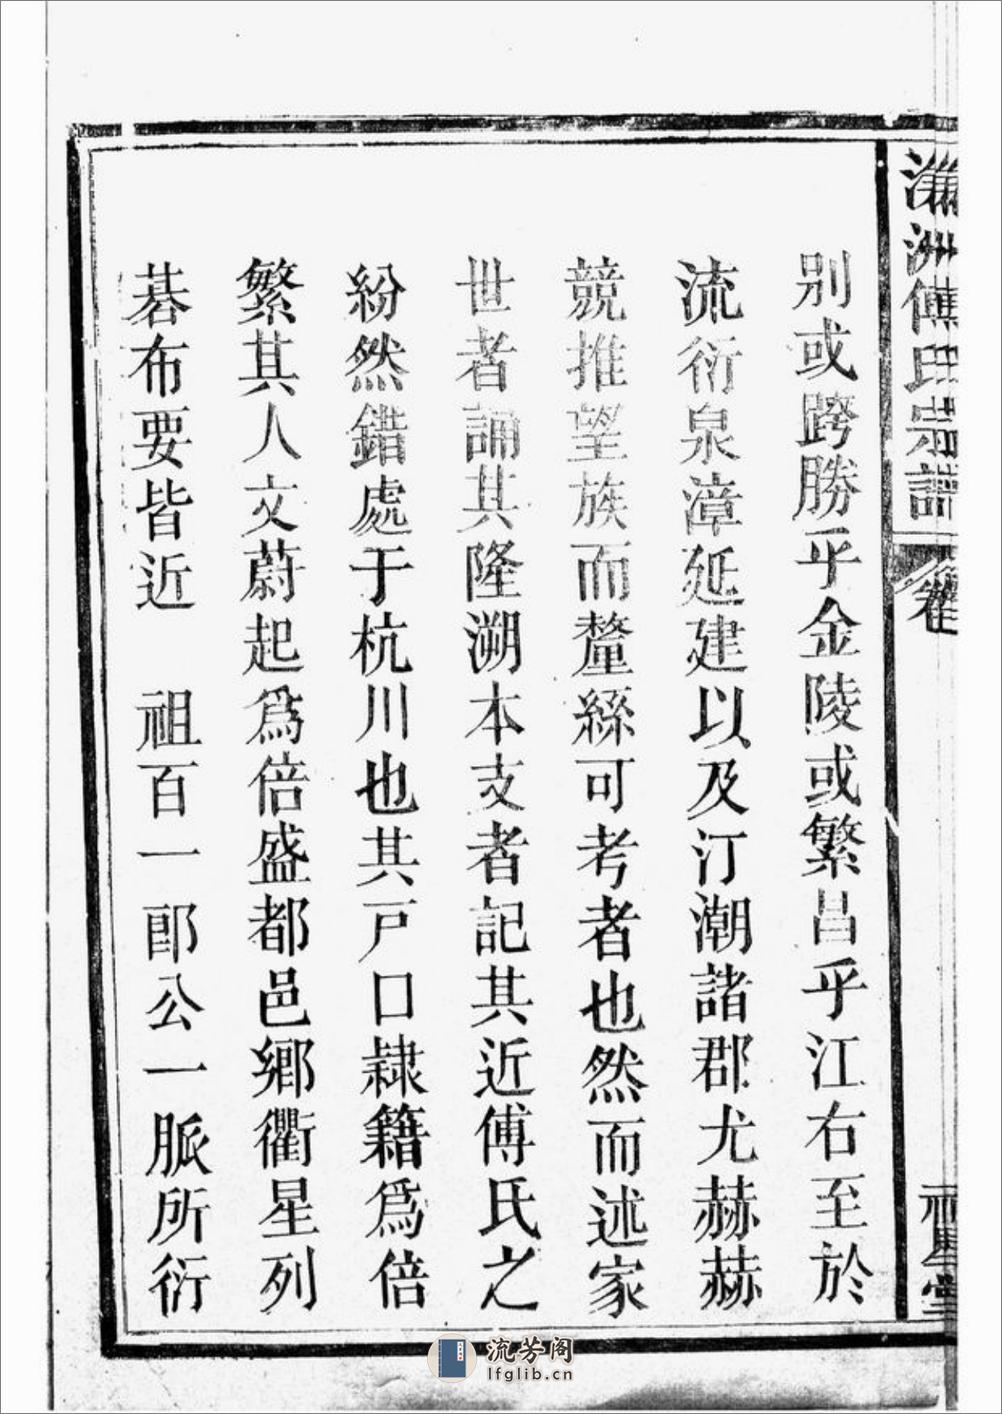 洲傅氏宗譜
卷
别或跨勝乎金陵或繁昌乎江右至於
流衍泉漳延建以及汀潮諸郡尤赫赫
競推望族而釐絲可考者也然而述家
世者誦其隆溯本支者記其近傅氏之
紛然錯處于杭川也其戸口隸籍爲倍
繁其人文蔚起爲倍盛都邑鄉衢星列
碁布要皆近　祖百一郎公一脈所衍
流芳阁
lfglib.cn